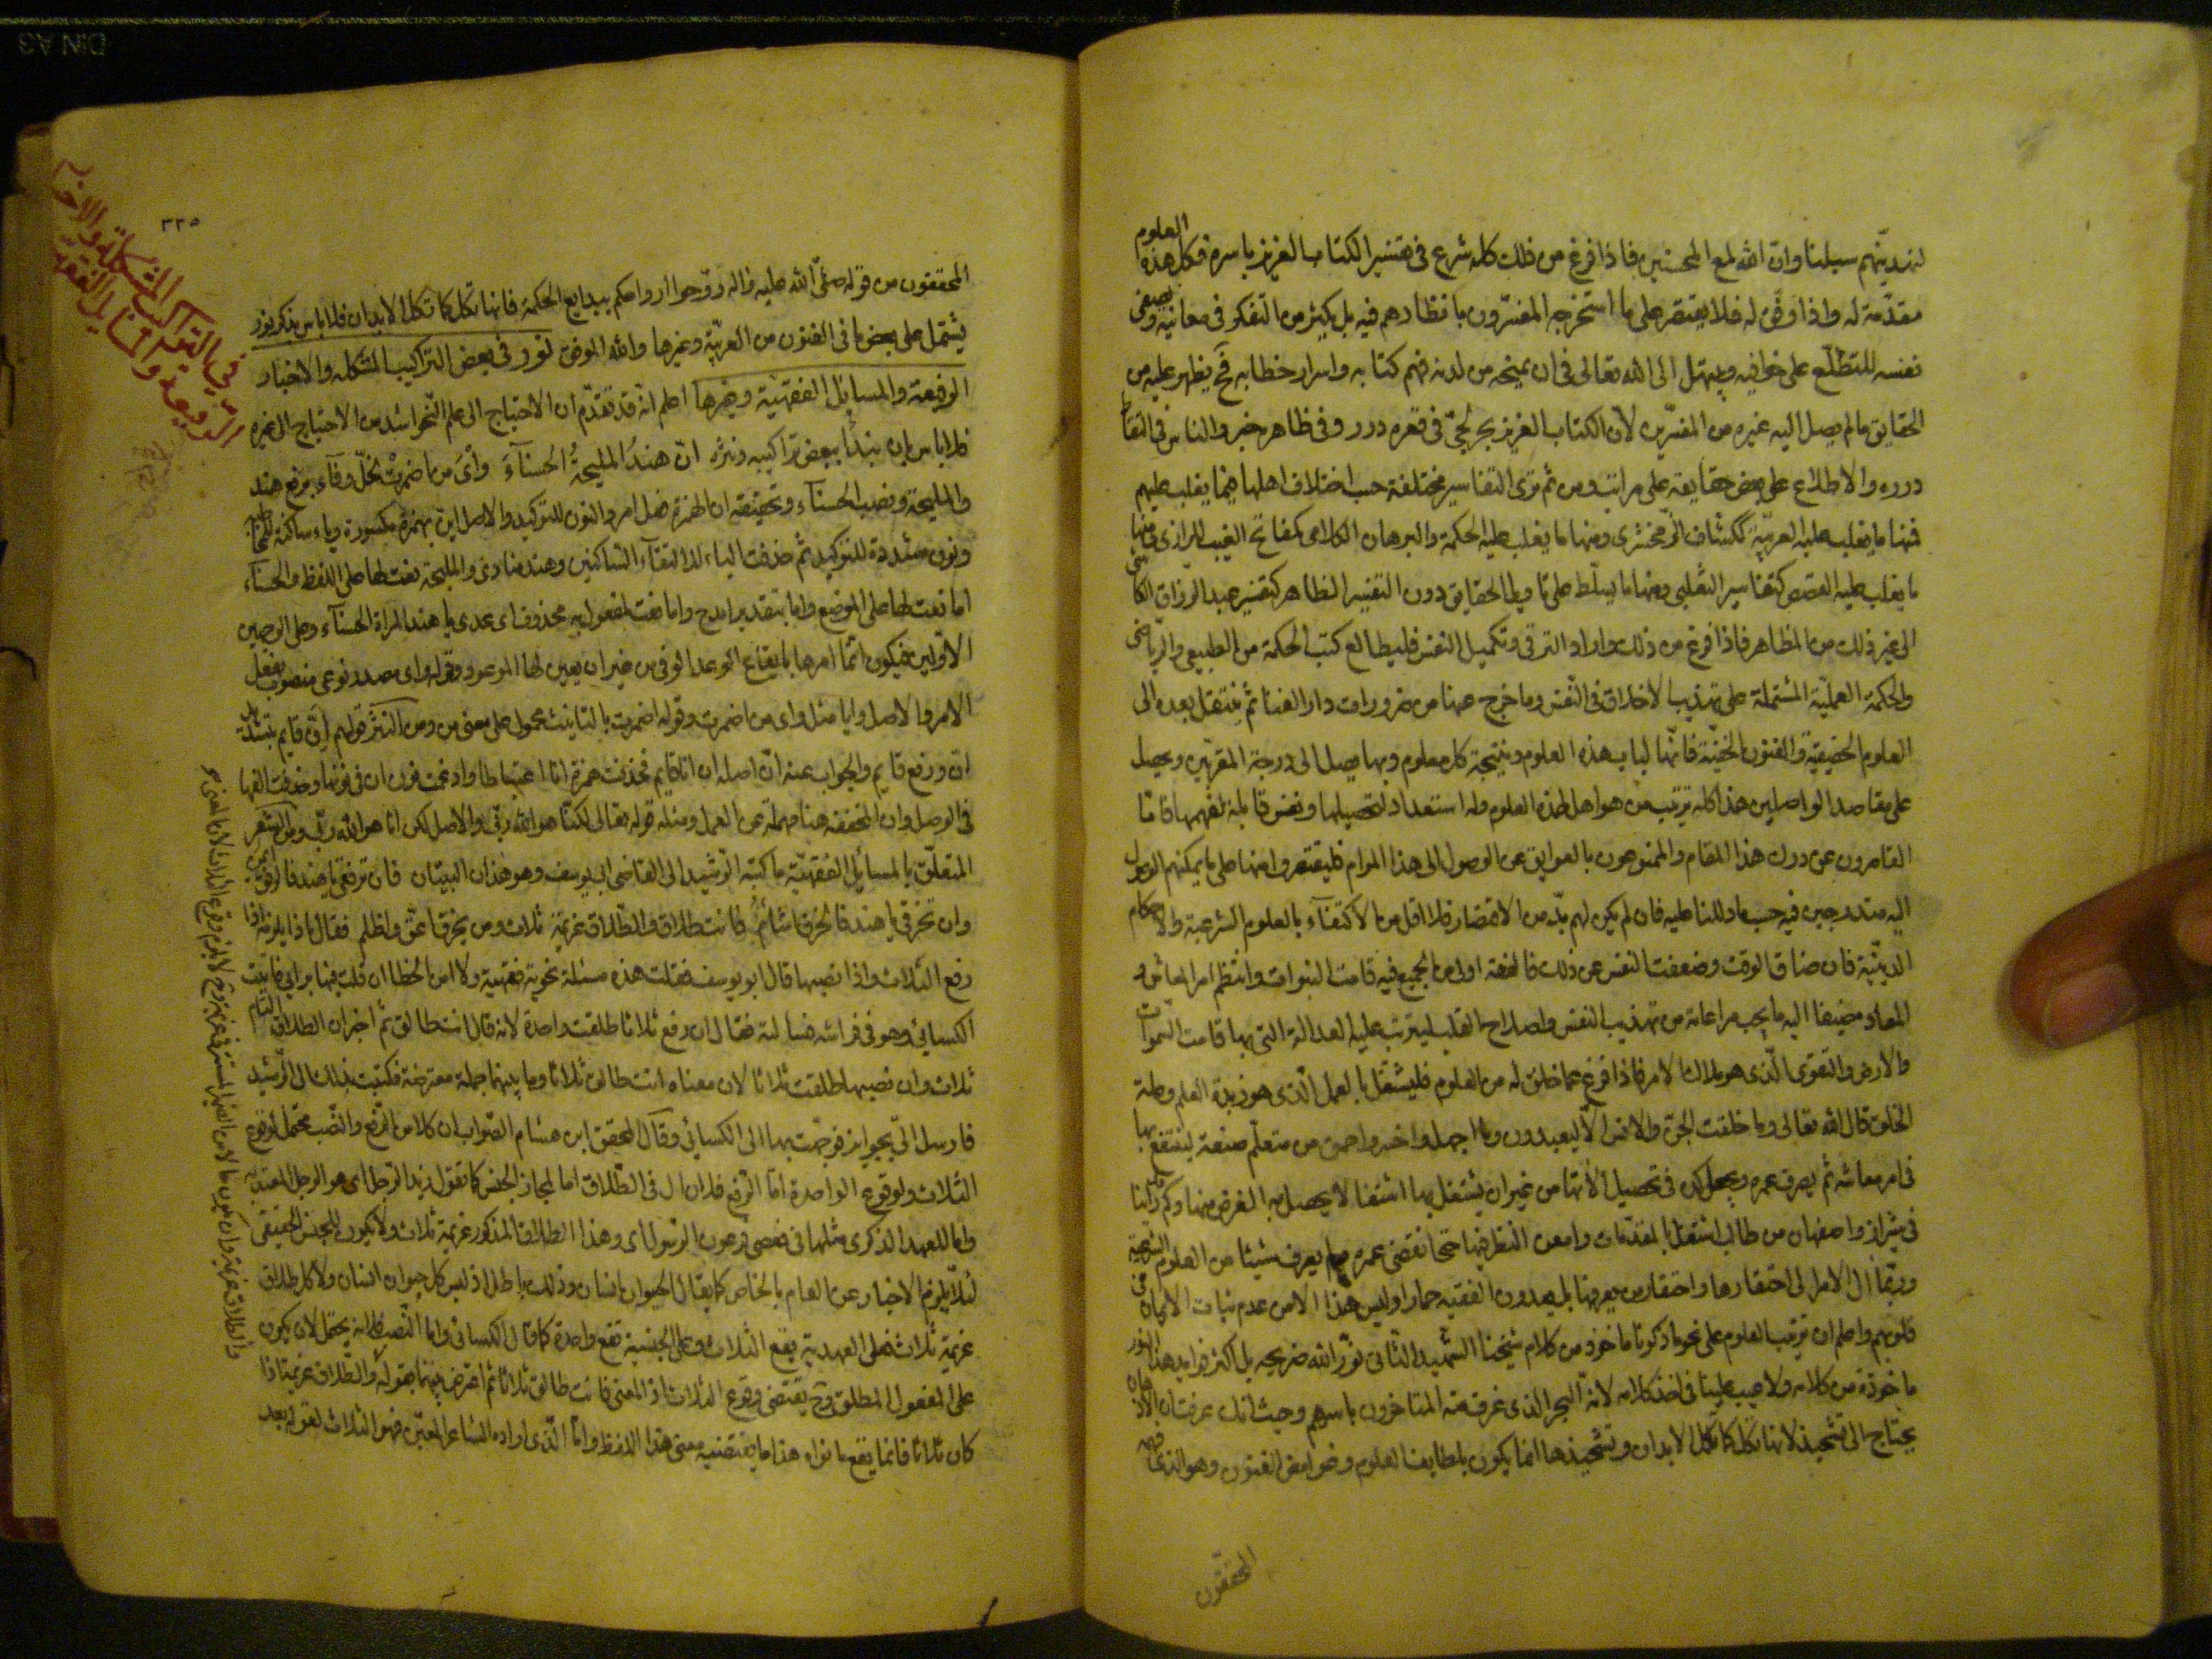 لنهدينهم سبلنا وان الله لمع المحسنين فاذا فرغ من ذلك كله شرع في تفسير الكتاب العزيز باسره فكل هذه العلوم
مقدمة له واذا وفق له فلا يقتصر على ما استخرجه المفسرون بانظارهم فيه بل يكثر من التفكر في معانيه ويصفى
نفسه للتطلع على خوافيه ويبتهل الى الله تعالى في ان يمنحه من لدنه فهم كتابه واسرار خطابه فح يظهر عليه من
الحقايق ما لم يصل اليه غيره من المفسرين لان الكتاب العزيز بحر لجي في قعره درر وفي ظاهره خير والناس في التقاط
درره والاطلاع على بعض حقايقه على مراتب ومن ثم ترى التفاسير مختلفة حسب اختلاف اهلها فيما يغلب عليهم
فمنها ما يغلب عليه العربية ككشاف الزمخشري ومنها ما يغلب عليه الحكمة والبرهان الكلامي كمفاتح الغيب للرازي ومنها
ما يغلب عليه القصص كتفاسير الثعلبي ومنها ما يسلط على تاويل الحقايق دون التفسير الظاهر كتفسير عبد الرزاق الكاشي
الى غير ذلك من المظاهر فاذا فرغ من ذلك واراد الترقي وتكميل النفس فليطالع كتب الحكمة من الطبيعي والرياضي
والحكمة العملية المشتملة على تهذيب الاخلاق في النفس وما خرج عنها من ضرورات دار الفنا ثم ينتقل بعده الى
العلوم الحقيقية والفنون الخفية فانها لباب هذه العلوم ونتيجة كل معلوم وبها يصل الى درجة المقربين ويحصل
على مقاصد الواصلين هذا كله ترتيب من هو اهل لهذه العلوم وله استعداد لتحصيلها ونفس قابلة لفهمها فاما
القاصرون عن درك هذا المقام والممنوعون بالعوايق عن الوصول الى هذا المرام فليقتصروا منها على ما يمكنهم الوصول
اليه متدرجين فيه حسب ما دللنا عليه فان لم يكن لهم بد من الاقتصار فلا اقل من الاكتفاء بالعلوم الشرعية والاحكام
الدينية فان ضاق الوقت وضعفت النفس عن ذلك فالفقه اولى من الجميع فبه قامت النبوات وانتظم امر المعاش و
المعاد مضيفا اليه ما يجب مراعاته من تهذيب النفس واصلاح القلب ليترتب عليه العدالة التي بها قامت السموات
والارض والتقوى الذي هو ملاك الامر فاذا فرغ عما خلق له من العلوم فليشتغل بالعمل الذي هو زبدة العلم وعلة
الخلق قال الله تعالى وما خلقت الجن والانس الا ليعبدون وما اجهل واخسر واحمق من متعلم صنعة لينتفع بها
في امر معاشه ثم يصرف عمره ويجعل كده في تحصيل الاتها من غير ان يشتغل بها اشتغالا يحصل به الغرض منها وكم قد راينا
في شيراز واصفهان من طالب اشتغل بالمقدمات وامعن النظر فيها حتى انقضى عمره ولم يعرف شيئا من العلوم الشرعية
وربما ال الامر الى احتقارها واحتقار من يعرفها بل يعدون الفقيه حمارا وليس هذا الا من عدم ثبات الايمان في
قلوبهم واعلم ان ترتيب العلوم على نحو ما ذكرنا ماخوذ من كلام شيخنا الشهيد الثاني نور الله ضريحه بل اكثر فوايد هذا النور
ماخوذة من كلامه ولا عيب علينا في اخذ كلامه لانه البحر الذي غرف منه المتاخرون باسرهم وحيث انك عرفت ان الاذهان
يحتاج الى تشحيذ لانها تكل كما تكل الابدان وتشحيذها انما يكون بلطايف العلوم وغوامض الفنون وهو الذي فهمه
المحققون
٣٣٥
في التراكيب المشكلة والاخبار
الرفيعة والمسايل الفقهية
المحققون من قوله صلى الله عليه واله روحوا ارواحكم ببدايع الحكمة فانها تكل كما تكل الابدان فلا باس بذكر نور
يشتمل على بعض ما في الفنون من العربية وغيرها والله الموفق نور في بعض التراكيب المشكله والاخبار
الرفيعة والمسايل الفقهية وغيرها اعلم انه قد تقدم ان الاحتياج الى علم النحو اشد من الاحتياج الى غيره
فلا باس بان نبدأ ببعض تراكيبه ونثره ان هند المليحة الحسناء وأى من اضمرت لخل وفاء برفع هند
والمليحة ونصب الحسناء وتحقيقه ان الهمزة فعل امر والنون للتوكيد والاصل اين بهمزة مكسورة وياء ساكنة للمخاطبة
ونون مشددة للتوكيد ثم حذفت الياء لالتقاء الساكنين وهند منادى والمليحة نعت لها على اللفظ والحسناء
اما نعت لها على الموضع واما بتقدير امدح واما نعت لمفعول به محذوف اى عدى يا هند المراة الحسناء وعلى الوجهين
الاولين فيكون انما امرها بايقاع الوعد الوفي من غير ان يعين لها الموعود وقوله واى مصدر نوعى منصوب بفعل
الامر والاصل وايا مثل واى من اضمرت وقوله اضمرت بالتانيث محمول على معنى من ومن النثر قولهم ان قايم بتشديد
ان ورفع قايم والجواب عنه ان اصله ان انا قايم فحذفت همزة انا اعتباطا وادغمت نون ان في نونها وحذفت الفها
في الوصل وان المخففة هنا مهملة عن العمل ومثله قوله تعالى لكنا هو الله ربي والاصل لكن انا هو الله ربي ومن الشعر
المتعلق بالمسائل الفقهية ما كتبه الرشيد الى القاضي ابى يوسف وهو هذان البيتان فان ترفقى يا هند فالرفق ايمن
وان تخرقى يا هند فالخرق اشأم فانت طلاق والطلاق عزيمة ثلاث ومن يخرق اعق واظلم فقال ماذا يلزمه اذا
رفع الثلاث واذا نصبها قال ابو يوسف فقلت هذه مسئلة نحوية فقهية ولا امن الخطا ان قلت فيها برايي فاتيت
الكسائي وهو في فراشه فسالته فقال ان رفع ثلاثا طلقت واحدة لانه قال انت طالق ثم اخبر ان الطلاق التام
ثلاث وان نصبها طلقت ثلاثا لان معناه انت طالق ثلاثا وما بينهما جملة معترضة فكتبت بذلك الى الرشيد
فارسل الى بجوايز فوجهت بها الى الكسائي وقال المحقق ابن هشام الصواب ان كلا من الرفع والنصب محتمل لوقوع
الثلاث ولوقوع الواحدة اما الرفع فلان ال في الطلاق اما لمجاز الجنس كما تقول زيد الرجل اى هو الرجل المعتد به
واما للعهد الذكرى مثلها في فعصى فرعون الرسول اى وهذا الطلاق المذكور عزيمة ثلاث ولا يكون للجنس الحقيقى
لئلا يلزم الاخبار عن العام بالخاص كما يقال الحيوان انسان وذلك باطل اذ ليس كل حيوان انسان ولا كل طلاق
عزيمة ثلاث فعلى العهدية يقع الثلاث وعلى الجنسية تقع واحدة كما قال الكسائى واما النصب فلانه يحتمل لان يكون
على المفعول المطلق وح يقتضى وقوع الثلاث اذ المعنى فانت طالق ثلاثا ثم اعترض بينهما بقوله والطلاق عزيمة اذا
كان ثلاثا فانما يقع ما نواه هذا ما يقتضيه معنى هذا اللفظ واما الذى اراده الشاعر المعين فهو الثلاث لقوله بعد